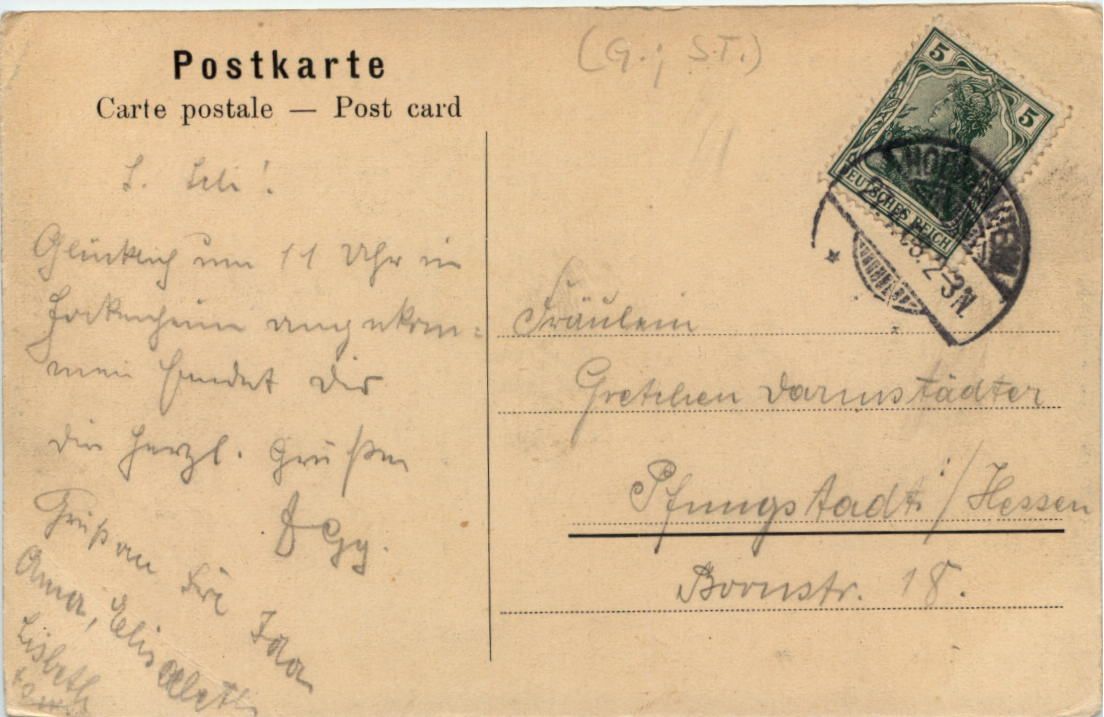 Postkarte
Carte postale — Post card
(G.; S.T.)
5 5
DEUTSCHES REICH
8.2-3N.
L. Lili!
Glücklich um 11 Uhr in
Hockenheim angekom=
men sendet Dir
die herzl. Grüße
Gruß an Ida
Anna, Elisabeth
Lisbeth
Fräulein
Gretchen Darmstädter
Pfungstadt i/Hessen
Bornstr. 18.